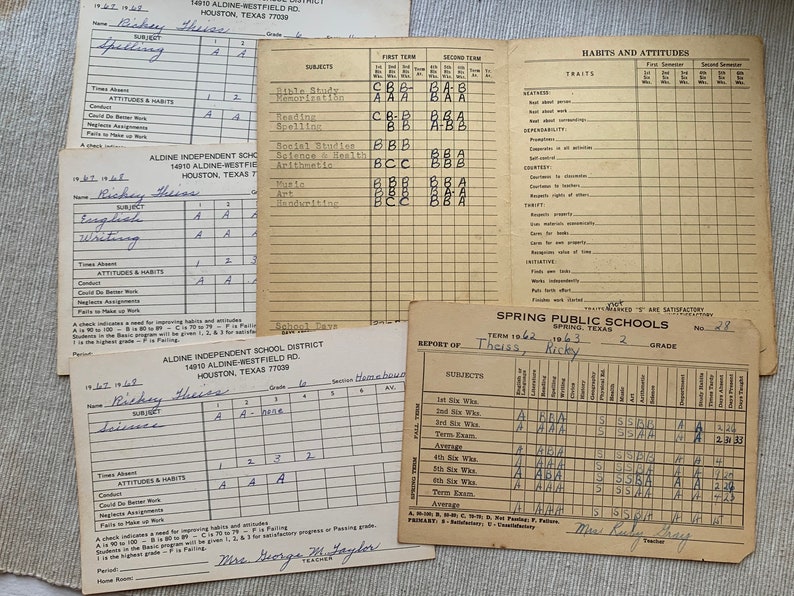 DISTRICT
14910 ALDINE-WESTFIELD RD.
HOUSTON, TEXAS 77039
1967 1968
Name Rickey Theiss Grade 6
SUBJECT 1 2
Spelling A A
Times Absent
ATTITUDES & HABITS 1 2
Conduct A A
Could Do Better Work
Neglects Assignments
Fails to Make up Work
A check indicates
ALDINE INDEPENDENT
14910 ALDINE-WESTFIELD
HOUSTON, TEXAS
1967 1968
Name Rickey Theiss
SUBJECT 1 2
English A A A
Writing A A A
Times Absent 1 2 3
ATTITUDES & HABITS
Conduct A A A
Could Do Better Work
Neglects Assignments
Fails to Make up Work
A check indicates a need for improving habits and attitudes
A is 90 to 100 - B is 80 to 89 - C is 70 to 79 - F is Failing
Students in the Basic program will be given 1, 2, & 3 for
1 is the highest grade - F is Failing.
Period:
ALDINE INDEPENDENT SCHOOL DISTRICT
14910 ALDINE-WESTFIELD RD.
HOUSTON, TEXAS 77039
1967 1968
Name Rickey Theiss Grade 6 Section Homebound
SUBJECT 1 2 3 4 5 6 AV.
Science A A- none
Times Absent 1 2 3 2
ATTITUDES & HABITS A A A
Conduct
Could Do Better Work
Neglects Assignments
Fails to Make up Work
A check indicates a need for improving habits and attitudes
A is 90 to 100 - B is 80 to 89 - C is 70 to 79 - F is Failing
Students in the Basic program will be given 1, 2, & 3 for satisfactory progress or Passing grade.
1 is the highest grade - F is Failing.
Period:
Mrs. George M. Taylor
Home Room: TEACHER
SUBJECTS FIRST TERM SECOND TERM
1st Six Wks. 2nd Six Wks. 3rd Six Wks. Term Av. 4th Six Wks. 5th Six Wks. 6th Six Wks. Term Av. Yr. Av.
Bible Study C B B- B A- B
Memorization A A A B A A
Reading C B- B B B A
Spelling B B A- B B
Social Studies B B B
Science & Health B B A
Arithmetic B C C B B B
Music B B B B B A
Art B B B B A A
Handwriting B C C B B A
School Days
HABITS AND ATTITUDES
TRAITS First Semester Second Semester
1st Six Wks. 2nd Six Wks. 3rd Six Wks. 4th Six Wks. 5th Six Wks. 6th Six Wks.
NEATNESS:
Neat about person
Neat about work
Neat about surroundings
DEPENDABILITY:
Promptness
Cooperates in all activities
Self-control
COURTESY:
Courteous to classmates
Courteous to teachers
Respects rights of others
THRIFT:
Respects property
Uses materials economically
Cares for books
Cares for own property
Recognizes value of time
INITIATIVE:
Finds own tasks
Works independently
Puts forth effort
Finishes work started
not
TRAITS MARKED "S" ARE SATISFACTORY
SPRING PUBLIC SCHOOLS
SPRING, TEXAS No. 28
TERM 1962 1963 2 GRADE
REPORT OF Theiss, Ricky
SUBJECTS English or Language Literature Reading Spelling Writing Civics History Geography Physical Ed. Health Music Art Arithmetic Science Department Study Habits Times Tardy Days Absent Days Present Days Taught
FALL TERM
1st Six Wks.
2nd Six Wks.
3rd Six Wks.
Term Exam.
Average
SPRING TERM
4th Six Wks.
5th Six Wks.
6th Six Wks.
Term Exam
Average
A, 90-100; B, 80-89; C, 70-79; D, Not Passing; F, Failure.
PRIMARY: S - Satisfactory; U - Unsatisfactory
Mrs Ruby Gray
Teacher